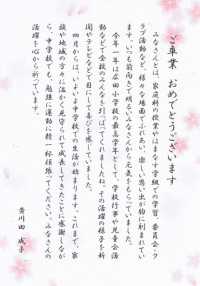 ご卒業 おめでとうございます
みなさんとは、家庭科の授業やはまなす学級での学習、委員会・ク
ラブ活動など、様々な場面でふれあい、楽しい思い出が胸に刻まれてい
ます。いつも前向きで明るいみなさんから元気をもらっていました。
今年一年は広田小学校の最高学年として、学校行事や児童会活
動などで全校のみんなを引っぱってくれましたね。その活躍の様子を新
聞やテレビなどで目にして喜びを感じていました。
四月からはいよいよ中学校での生活が始まります。これまで、家
族や地域の方々に温かく見守られて成長してきたことに感謝しなが
ら、中学校でも、勉強に運動に精一杯頑張ってください。みなさんの
活躍を心から祈っています。
黄川田 成子